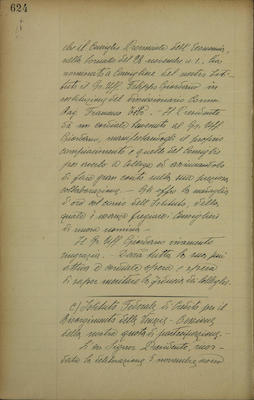 624
che il Consiglio Provinciale dell'Economia,
nella tornata del 28 novembre u. s. ha
nominato a Consigliere del nostro Isti-
tuto il Gr. Uff. Filippo Giordano in
sostituzione del dimissionario Comm.
Rag. Francesco - Il Presidente
dà un cordiale benvenuto al Gr. Uff.
Giordano, manifestandogli il proprio
compiacimento e quello del Consiglio
per averlo a Collega ed assicurandolo
di fare gran conto sulla sua preziosa
collaborazione. - Gli offre la medaglia
d'oro col nome dell'Istituto, della
quale è norma fregiare i Consiglieri
di nuova nomina. -
Il Gr. Uff. Giordano vivamente
ringrazia. - Darà tutta la sua più
attiva e cordiale opera e spera
di saper meritare la fiducia dei colleghi.
c) Istituto Federale di Credito per il
Risorgimento delle Venezie - Cessione
della nostra quota di partecipazione.
Il Signor Presidente, ricor-
data la deliberazione 5 novembre